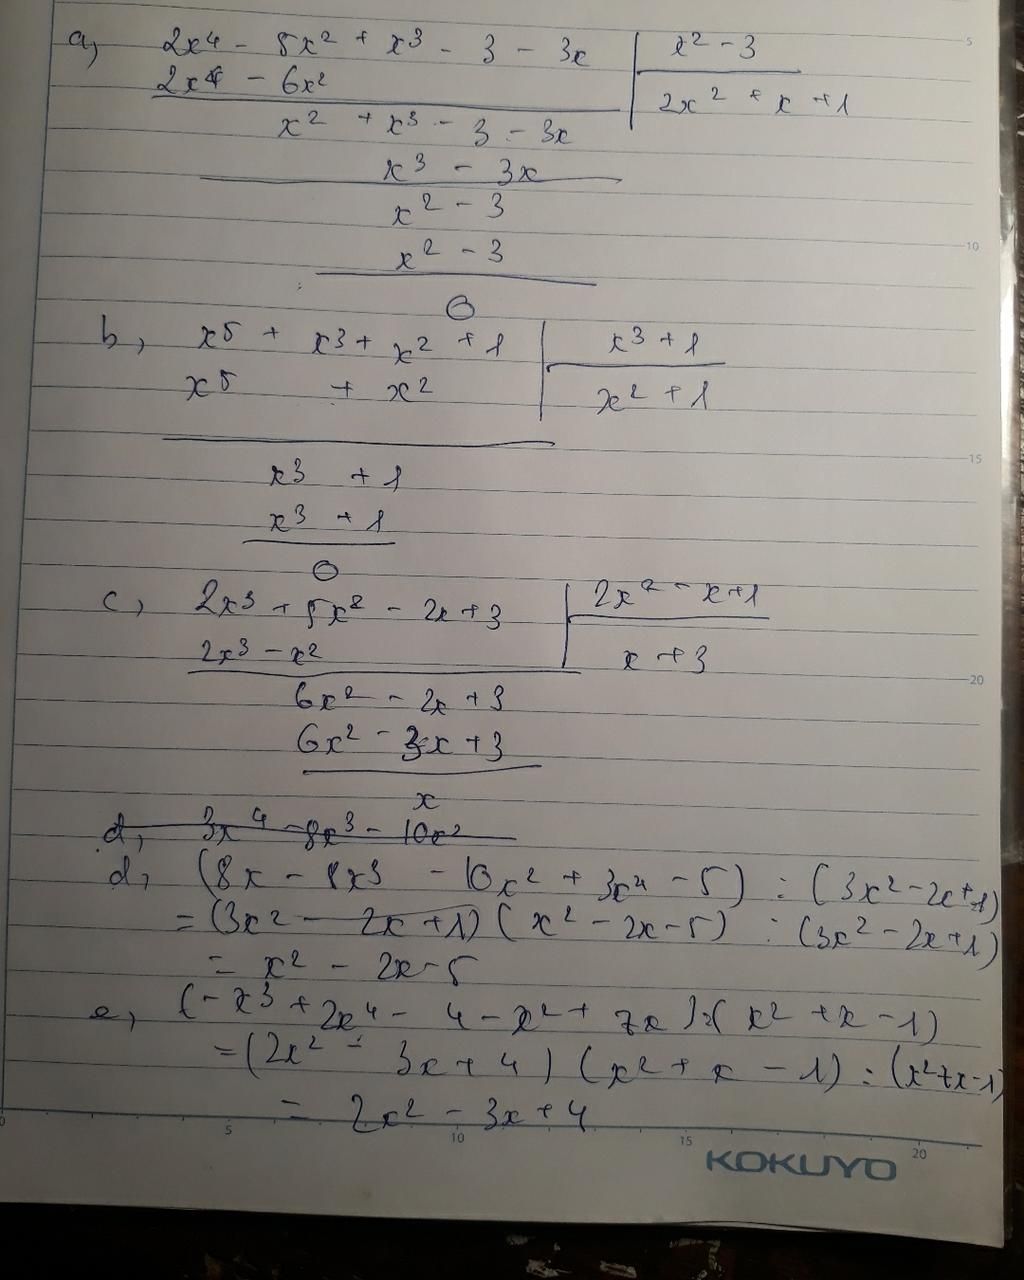 a, 2x⁴ - 5x² + x³ - 3 - 3x | x² - 3
2x⁴ - 6x² | 2x² + x + 1
x² + x³ - 3 - 3x
x³ - 3x
x² - 3
x² - 3
0
b, x⁵ + x³ + x² + 1 | x³ + 1
x⁵ + x² | x² + 1
x³ + 1
x³ + 1
0
c, 2x³ + 5x² - 2x + 3 | 2x² - x + 1
2x³ - x² | x + 3
6x² - 2x + 3
6x² - 3x + 3
x
d, 3x⁴ - 8x³ - 10x²
d, (8x - 8x³ - 10x² + 3x⁴ - 5) : (3x² - 2x + 1)
= (3x² - 2x + 1) (x² - 2x - 5) : (3x² - 2x + 1)
= x² - 2x - 5
e, (-x³ + 2x⁴ - 4 - x² + 7x) : (x² + x - 1)
= (2x² - 3x + 4) (x² + x - 1) : (x² + x - 1)
= 2x² - 3x + 4
KOKUYO